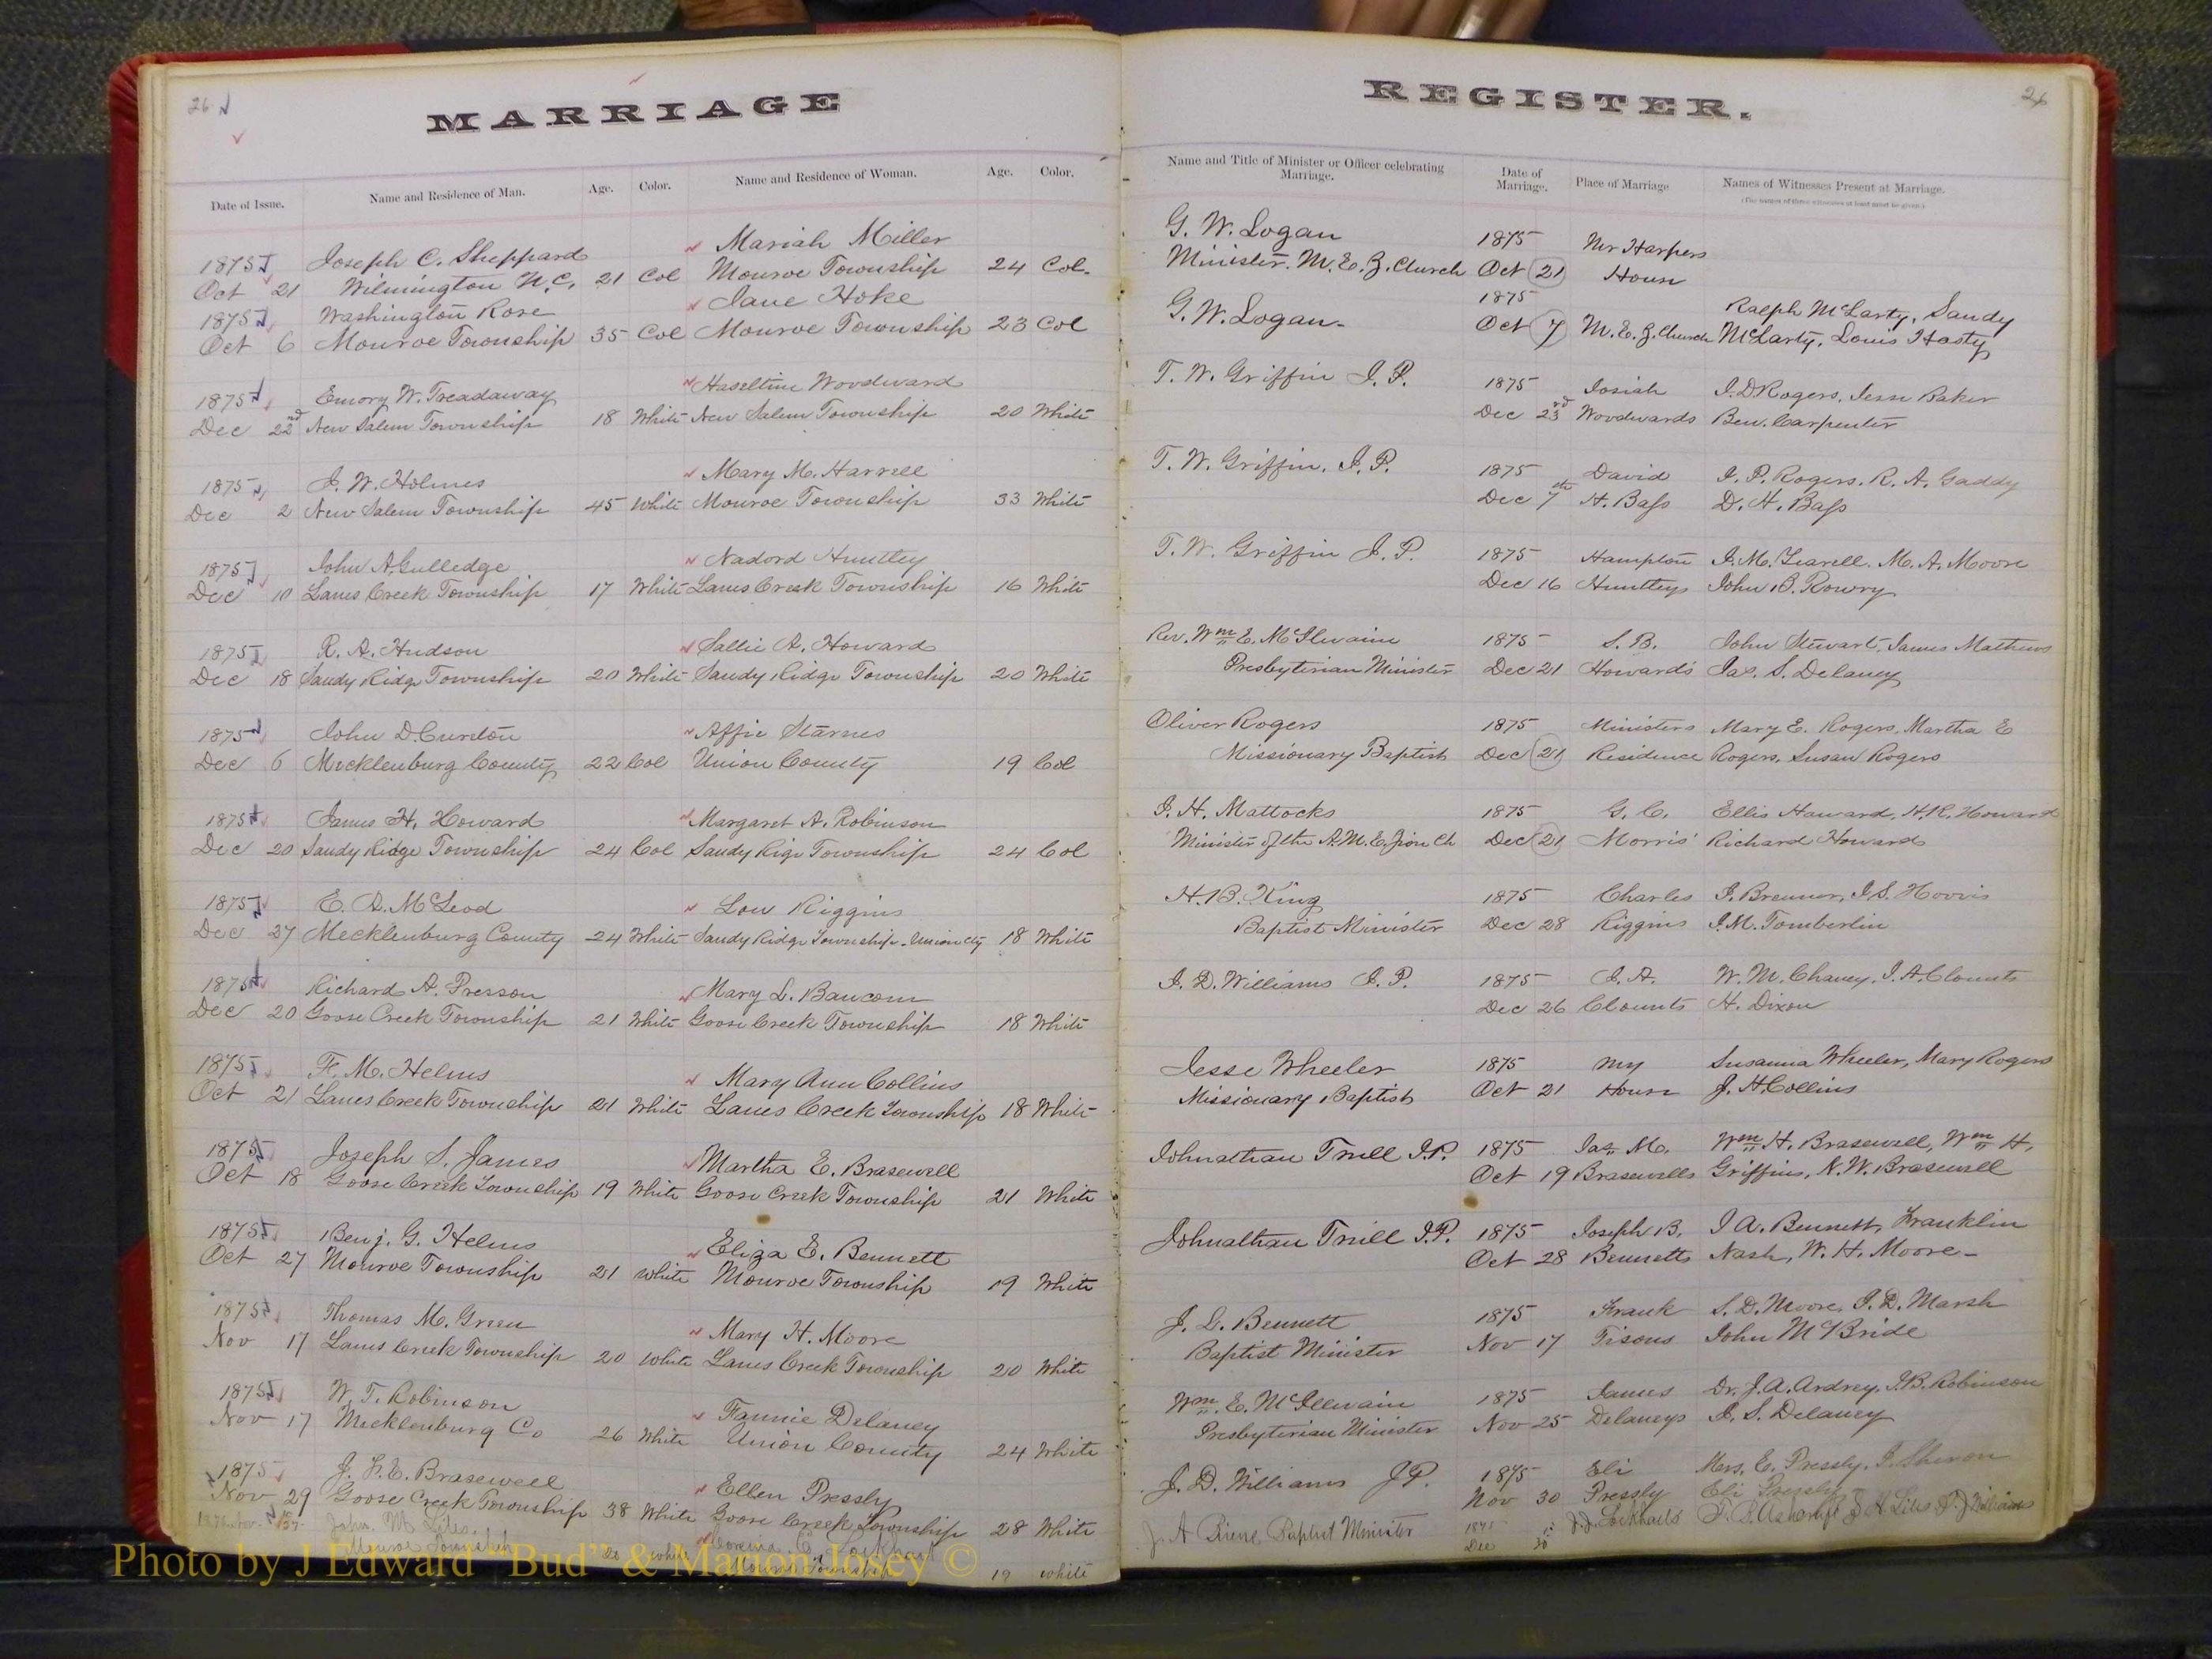 26
MARRIAGE
Date of Issue. Name and Residence of Man. Age. Color. Name and Residence of Woman. Age. Color.
1875 Joseph C. Sheppard Mariah Miller
Oct 21 Wilmington N.C. 21 Col Monroe Township 24 Col.
1875 Washington Rose Jane Hoke
Oct 6 Monroe Township 35 Col Monroe Township 23 Col
1875 Emory W. Treadaway Haseltine Woodward
Dec 22nd New Salem Township 18 White New Salem Township 20 White
1875 J. W. Holmes Mary M. Harrell
Dec 2 New Salem Township 45 White Monroe Township 33 White
1875 John A. Gulledge Nadord Huntley
Dec 10 Lanes Creek Township 17 White Lanes Creek Township 16 White
1875 R. A. Hudson Sallie A. Howard
Dec 18 Sandy Ridge Township 20 White Sandy Ridge Township 20 White
1875 John D. Cureton Affie Starnes
Dec 6 Mecklenburg County 22 Col Union County 19 Col
1875 James H. Howard Margaret A. Robinson
Dec 20 Sandy Ridge Township 24 Col Sandy Rige Township 24 Col
1875 E. A. McLeod Lou Riggins
Dec 27 Mecklenburg County 24 White Sandy Ridge Township. Union Cty 18 White
1875 Richard A. Presson Mary L. Baucom
Dec 20 Goose Creek Township 21 White Goose Creek Township 18 White
1875 F. M. Helms Mary Ann Collins
Oct 21 Lanes Creek Township 21 White Lanes Creek Township 18 White
1875 Joseph S. James Martha E. Brasewell
Oct 18 Goose Creek Township 19 White Goose Creek Township 21 White
1875 Benj. G. Helms Eliza E. Bennett
Oct 27 Monroe Township 21 White Monroe Township 19 White
1875 Thomas M. Green Mary H. Moore
Nov 17 Lanes Creek Township 20 White Lanes Creek Township 20 White
1875 W. T. Robinson Fannie Delaney
Nov 17 Mecklenburg Co 26 White Union County 24 White
1875 J. L. E. Brasewell Ellen Pressly
Nov 29 Goose Creek Township 38 White Goose Creek Township 28 White
John M Liles Lockhart
Monroe Township 20 white Township 19 white
Photo by J Edward "Bud" & Marion Josey ©
REGISTER.
26
Name and Title of Minister or Officer celebrating Marriage. Date of Marriage. Place of Marriage Names of Witnesses Present at Marriage.
(The names of three witnesses at least must be given)
G. W. Logan 1875 Mr Harpers
Minister. M. E. Z. Church Oct 21 House
G. W. Logan. 1875 Ralph McLarty, Sandy
Oct 7 M. E. Z. Church McLarty, Louis Hasty
T. W. Griffin J. P. 1875 Josiah J. D Rogers, Jesse Baker
Dec 23rd Woodwards Ben. Carpenter
T. W. Griffin. J. P. 1875 David J. P. Rogers. R. A. Gaddy
Dec 7th H. Bass D. H. Bass
T. W. Griffin J. P. 1875 Hampton J. M. Learell. M. A. Moore
Dec 16 Huntleys John B. Rowry
Rev. Wm E. McIlwaine 1875 S. B. John Stewart, James Mathews
Presbyterian Minister Dec 21 Howard's Jas. S. Delaney
Oliver Rogers 1875 Ministers Mary E. Rogers, Martha E
Missionary Baptist Dec 21 Residence Rogers, Susan Rogers
J. H. Mattocks 1875 G. C. Ellis Howard, H.R. Howard
Minister of the A.M.E. Zion Ch Dec 21 Morris' Richard Howard
H. B. King 1875 Charles J. Brenner, J. S. Hoovis
Baptist Minister Dec 28 Riggins J. M. Tomberlin
J. D. Williams J. P. 1875 J. A. W. M. Chaney, J. A. Clonts
Dec 26 Clounts H. Dixon
Jesse Wheeler 1875 My Susanna Wheeler, Mary Rogers
Missionary Baptist Oct 21 House J. H. Collins
Johnathan Trull J.P. 1875 Jas. M. Wm H. Brasewell, Wm H,
Oct 19 Brasewells Griffin, N. W. Brasewell
Johnathan Trull J.P. 1875 Joseph B. J A. Bennett, Franklin
Oct 28 Bennetts Nash, W. H. Moore
J. L. Bennett 1875 Frank S. D. Moore, J. D. Marsh
Baptist Minister Nov 17 Tisons John McBride
Wm. E. McIllwain 1875 James Dr. J. A. Ardrey, J. B. Robinson
Presbyterian Minister Nov 25 Delaneys J. S. Delaney
J. D. Williams J P. 1875 Eli Mrs. E. Pressly, J. Sheron
Nov 30 Pressly Eli Pressly
J. A Baptist Minister 1875 Dec 30 J. J. Lockharts J H Liles J Williams